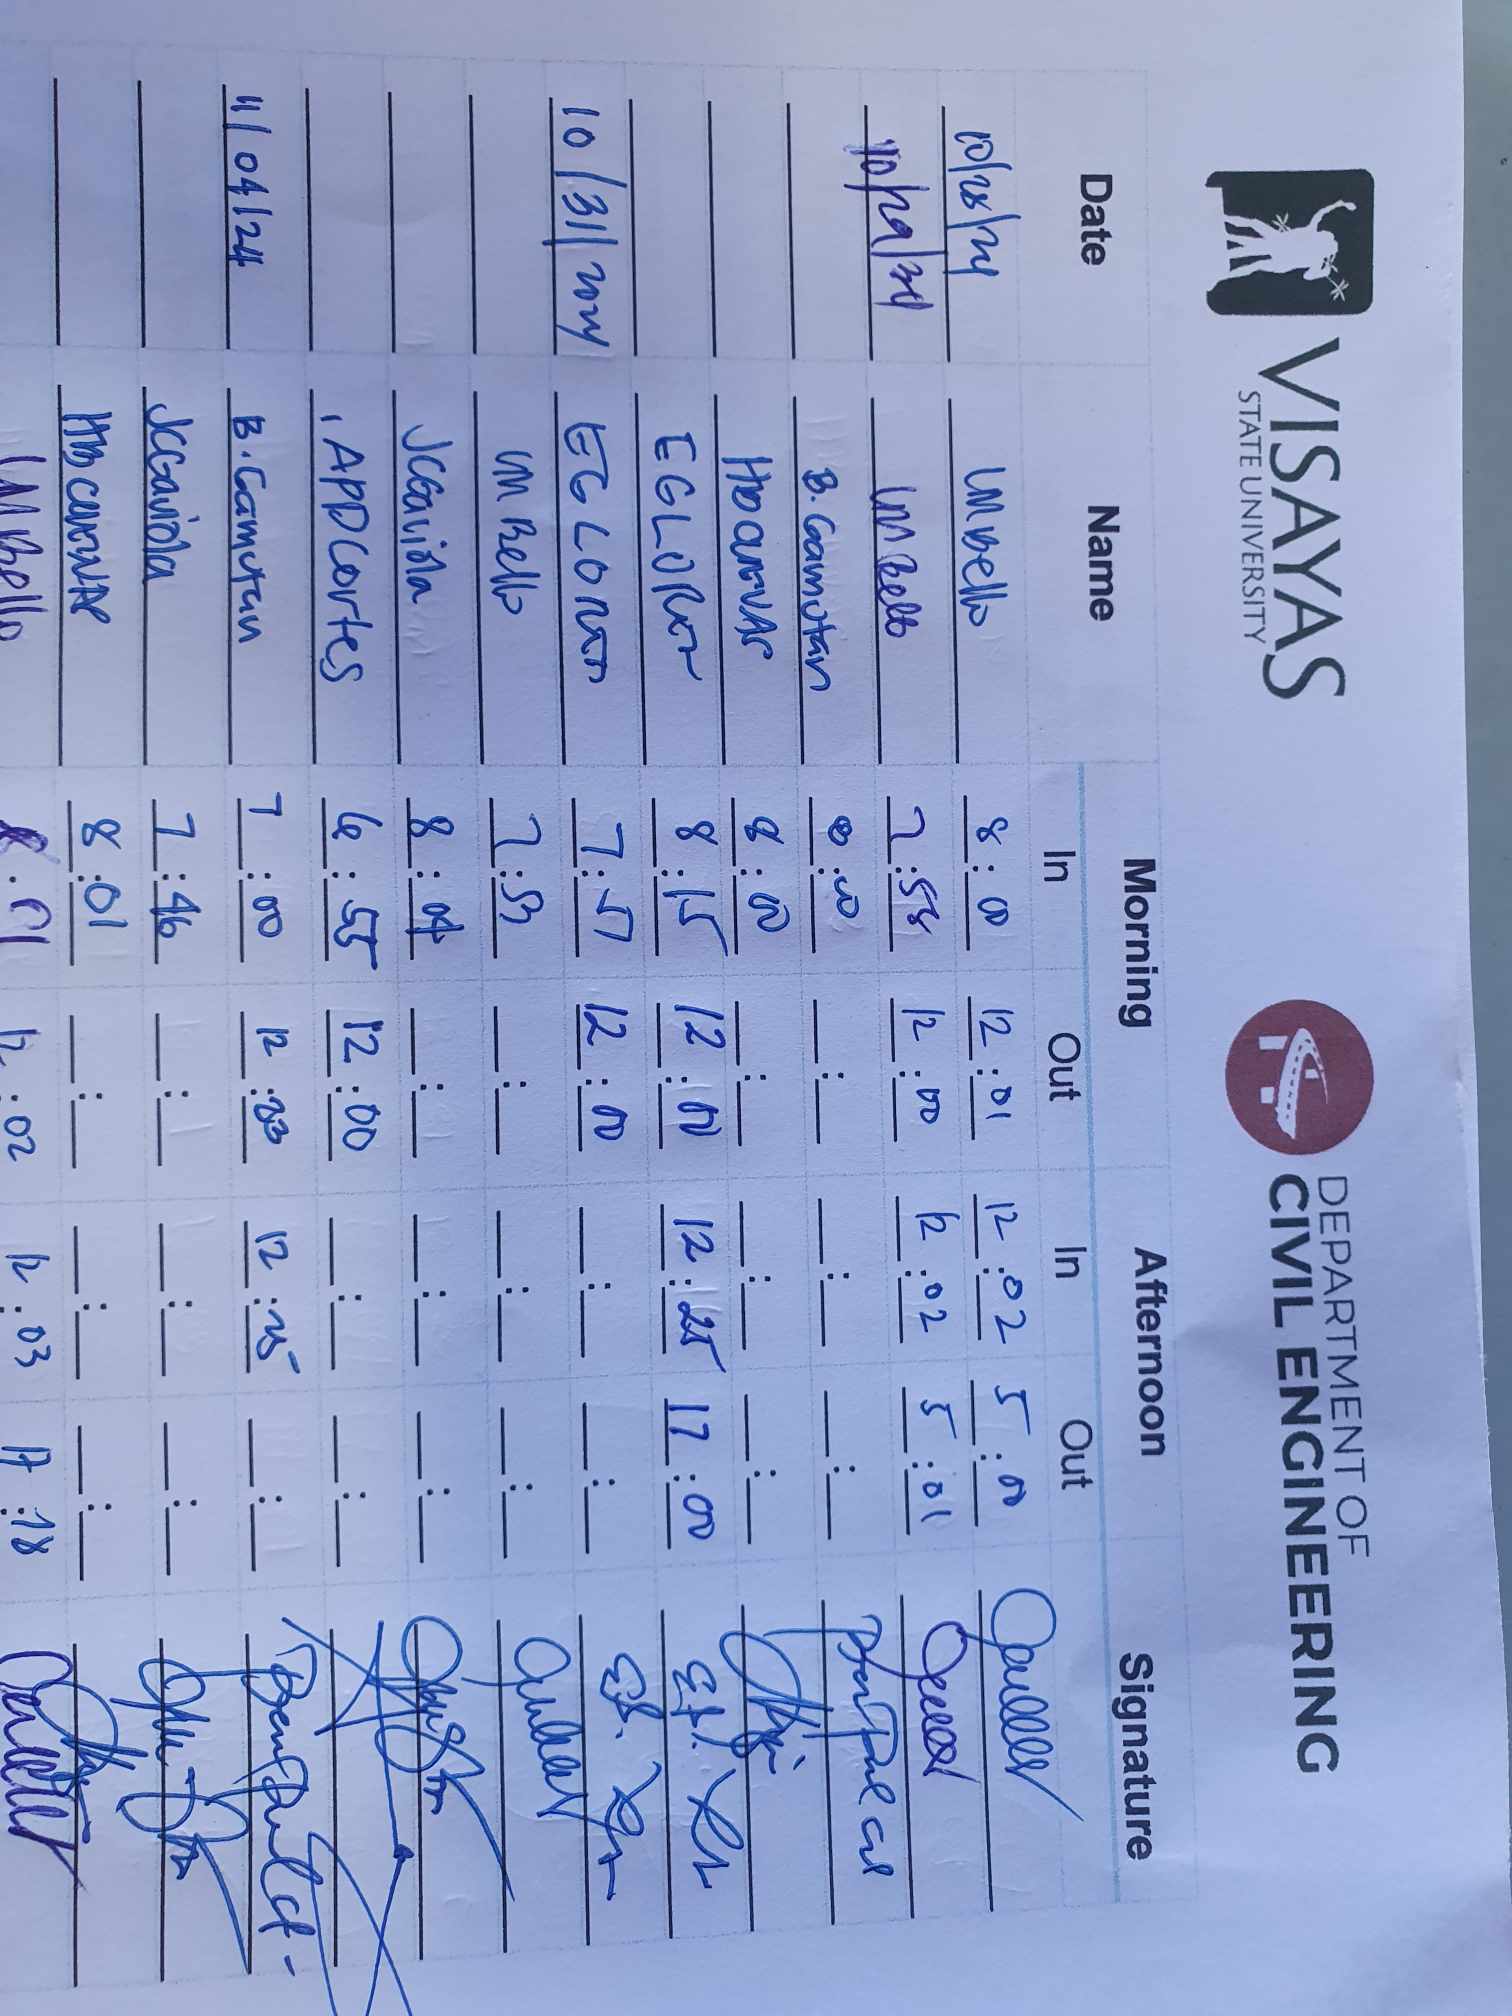 VISAYAS
STATE UNIVERSITY
DEPARTMENT OF
CIVIL ENGINEERING
Date Name Morning Afternoon Signature
In Out In Out
10/28/24 LM Bello 8:00 12:01 12:02 5:00
LM Bello 7:58 12:00 12:02 5:01
B. Gamutan
8:00
EGLORIA 8:15 12:00 12:25 17:00
10/31/2024 EGLORIA 7:57 12:00
LM Bello
JCGaviola 8:04
APDCortes 6:55 12:00
11/04/24 B. Gamutan 7:00 12:23 12:25
JCGaviola 7:46
8:01
LMBello 8:01 12:02 12:03 17:18